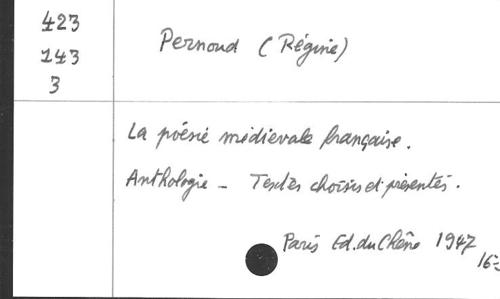 423
143
3
Pernoud (Régine)
La poésie médievale française.
Anthologie - Textes choisis et présentés.
Paris Ed. du Chêne 1947
16=